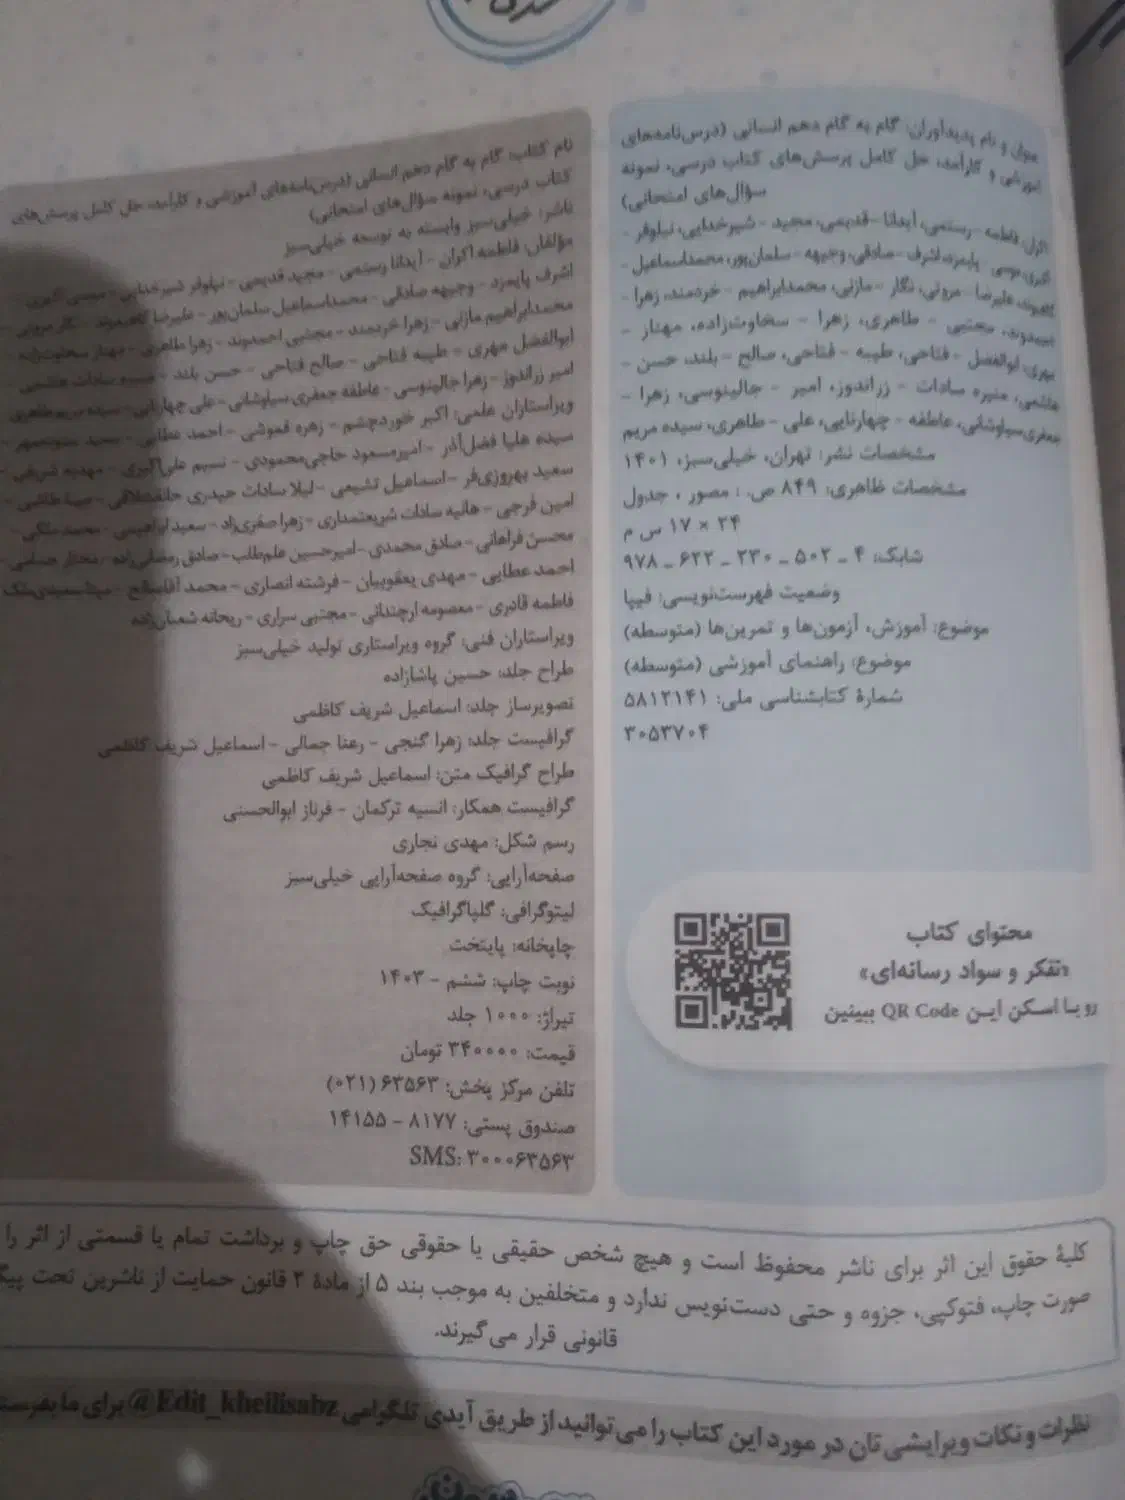 عنوان و نام پدیدآوران: گام به گام دهم انسانی (درس‌نامه‌های
آموزشی و کارآمد، حل کامل پرسش‌های کتاب درسی، نمونه
سؤال‌های امتحانی)
فاطمه - رستمی، آیدانا - قدیمی، مجید - شیرخدایی، نیلوفر -
پایمزد، اشرف - صادقی، وجیهه - سلمان‌پور، محمداسماعیل -
علیرضا - مرونی، نگار - مازنی، محمدابراهیم - خردمند، زهرا -
احمدوند، مجتبی - طاهری، زهرا - سخاوت‌زاده، مهناز -
مهری، ابوالفضل - فتاحی، طیبه - فتاحی، صالح - بلند، حسن -
هاشمی، منیره سادات - زراندوز، امیر - جالینوسی، زهرا -
جعفری‌سیاوشانی، عاطفه - چهارتایی، علی - طاهری، سیده مریم
مشخصات نشر: تهران، خیلی‌سبز، ۱۴۰۱
مشخصات ظاهری: ۸۴۹ ص. : مصور ، جدول
۲۴ × ۱۷ س م
شابک: ۴ ـ ۵۰۲ ـ ۲۳۰ ـ ۶۲۲ ـ ۹۷۸
وضعیت فهرست‌نویسی: فیپا
موضوع: آموزش، آزمون‌ها و تمرین‌ها (متوسطه)
موضوع: راهنمای آموزشی (متوسطه)
شمارهٔ کتابشناسی ملی: ۵۸۱۲۱۴۱
۳۰۵۳۷۰۴
محتوای کتاب
«تفکر و سواد رسانه‌ای»
رو با اسکن این QR Code ببینین
نام کتاب: گام به گام دهم انسانی (درس‌نامه‌های آموزشی و کارآمد، حل کامل پرسش‌های
کتاب درسی، نمونه سؤال‌های امتحانی)
ناشر: خیلی‌سبز وابسته به توسعه خیلی‌سبز
مؤلفان: فاطمه اکران - آیدانا رستمی - مجید قدیمی - نیلوفر شیرخدایی -
اشرف پایمزد - وجیهه صادقی - محمداسماعیل سلمان‌پور - علیرضا - نگار مرونی -
محمدابراهیم مازنی - زهرا خردمند - مجتبی احمدوند - زهرا طاهری - مهناز سخاوت‌زاده -
ابوالفضل مهری - طیبه فتاحی - صالح فتاحی - حسن بلند - منیره سادات هاشمی -
امیر زراندوز - زهرا جالینوسی - عاطفه جعفری سیاوشانی - علی چهارتایی - سیده مریم طاهری
ویراستاران علمی: اکبر خوردچشم - زهره قموشی - احمد عطایی - سعید
سیده هلیا فضل‌آذر - امیرمسعود حاجی‌محمودی - نسیم علی‌اکبری - مهدیه شریفی -
سعید بهروزی‌فر - اسماعیل تشیعی - لیلا سادات حیدری
امین فرجی - هانیه سادات شریعتمداری - زهرا صفری‌زاد - سعید ابراهیمی - محمد ملکی -
محسن فراهانی - صادق محمدی - امیرحسین علم‌طلب - صادق رمضانی‌زاده - مختار حسامی -
احمد عطایی - مهدی یعقوبیان - فرشته انصاری - محمد آقاصالح -
فاطمه قادری - معصومه ارجندانی - مجتبی سراری - ریحانه شعبان‌زاده
ویراستاران فنی: گروه ویراستاری تولید خیلی‌سبز
طراح جلد: حسین پاشازاده
تصویرساز جلد: اسماعیل شریف کاظمی
گرافیست جلد: زهرا گنجی - رعنا جمالی - اسماعیل شریف کاظمی
طراح گرافیک متن: اسماعیل شریف کاظمی
گرافیست همکار: انسیه ترکمان - فرناز ابوالحسنی
رسم شکل: مهدی نجاری
صفحه‌آرایی: گروه صفحه‌آرایی خیلی‌سبز
لیتوگرافی: گلپاگرافیک
چاپخانه: پایتخت
نوبت چاپ: ششم - ۱۴۰۳
تیراژ: ۱۰۰۰ جلد
قیمت: ۳۴۰۰۰۰ تومان
تلفن مرکز پخش: ۶۳۵۶۳ (۰۲۱)
صندوق پستی: ۸۱۷۷ - ۱۴۱۵۵
SMS: ۳۰۰۰۶۳۵۶۳
کلیهٔ حقوق این اثر برای ناشر محفوظ است و هیچ شخص حقیقی یا حقوقی حق چاپ و برداشت تمام یا قسمتی از اثر را
صورت چاپ، فتوکپی، جزوه و حتی دست‌نویس ندارد و متخلفین به موجب بند ۵ از مادهٔ ۲ قانون حمایت از ناشرین تحت
قانونی قرار می‌گیرند.
نظرات و نکات ویرایشی تان در مورد این کتاب را می‌توانید از طریق آیدی تلگرامی @Edit_kheilisabz برای ما بفرستید